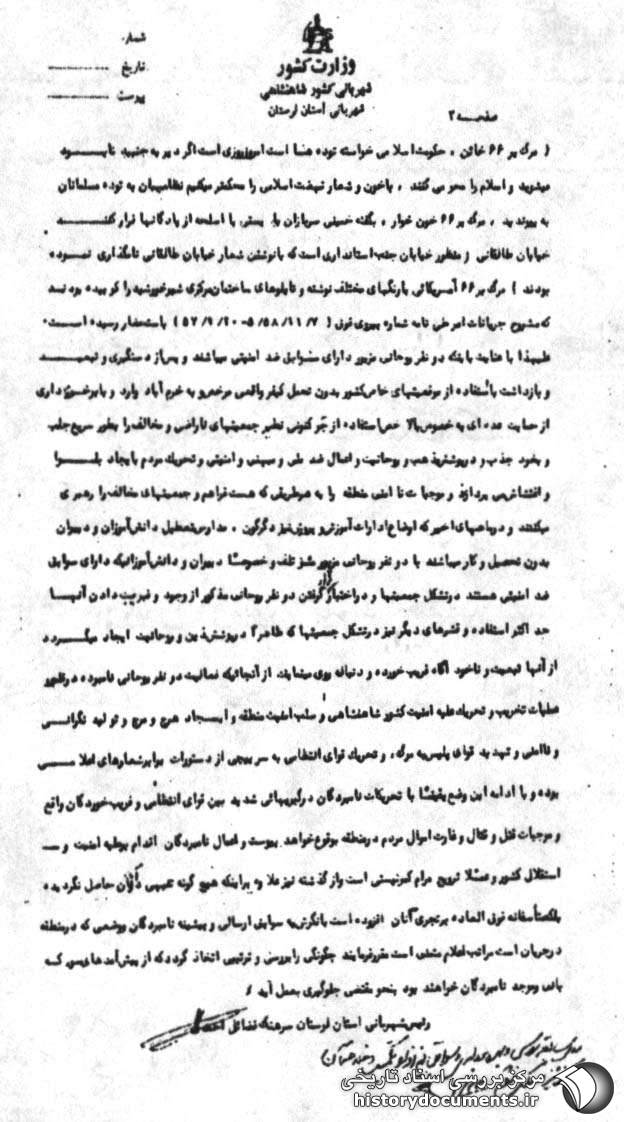 شماره
تاریخ
پیوست
وزارت کشور
شهربانی کشور شاهنشاهی
شهربانی استان لرستان
صفحه ۲
( مرگ بر ۶۶ خائن ، حکومت اسلامی خواسته توده هاست امروز روزی است اگر دیر به جنبید نابود
میشوید و اسلام را محو می کنند ، باخون و شعار نهضت اسلامی را محکمتر میکنیم نظامیان به توده مسلمانان
به پیوندید ، مرگ بر ۶۶ خون خوار ، بگفته خمینی سربازان با اسلحه از پادگانها فرار کنند
خیابان طالقانی ( منظور خیابان جنب استانداری است که با نوشتن شعار خیابان طالقانی نامگذاری نموده
بودند ) مرگ بر ۶۶ آمریکائی بارنگهای مختلف نوشته و تابلوهای ساختمان مرکزی شیرخورشید را کوبیده بودند
که مشروح جریانات امر طی نامه شماره پیروی فوق باستحضار رسیده است .
علیهذا با عنایت باینکه دو نفر روحانی مزبور دارای سوابق ضد امنیتی میباشند و پس از دستگیری و تبعید
و بازداشت با استفاده از موقعیتهای خاص کشور بدون تحمل کیفر واقعی مرخص و به خرم آباد وارد و با برخورداری
از حمایت عده ای به خصوص بالا خص استفاده از جو کنونی نظیر جمعیتهای ناراضی و مخالف را بطور سریع جلب
و بخود جذب و در پوشش مذهب و روحانیت و اعمال ضد ملی و میهنی و امنیتی و تحریک مردم بایجاد بلوا
و اغتشاش می پردازند و موجبات نا امنی منطقه را به هر طریقی که هست فراهم و جمعیتهای مخالف را رهبری
میکنند و در ماههای اخیر که اوضاع ادارات آموزش و پرورش نیز دگرگون ، مدارس تعطیل دانش آموزان و دبیران
بدون تحصیل و کار میباشند با دو نفر روحانی مزبور و خصوصاً دبیران و دانش آموزانیکه دارای سوابق
ضد امنیتی هستند در تشکل جمعیتها و در اختیار قرار گرفتن دو نفر روحانی مذکور از وجود و فریب دادن آنها
حد اکثر استفاده و قشرهای دیگر نیز در تشکل جمعیتها که ظاهراً در پوشش دین و روحانیت ایجاد میگردد
از آنها تبعیت و ناخود آگاه فریب خورده و دنباله روی مینمایند از آنجائیکه فعالیت دو نفر روحانی نامبرده در ظهور
عملیات تخریب و تحریک علیه امنیت کشور شاهنشاهی و سلب امنیت منطقه و ایجاد هرج و مرج و تولید نگرانی
و ناامنی و تهدید قوای پلیس به مرگ ، و تحریک قوای انتظامی به سرپیچی از دستورات برابر شعارهای اعلامی
بوده و با ادامه این وضع یقیناً با تحریکات نامبردگان درگیریهائی شدید بین قوای انتظامی و فریب خوردگان واقع
و موجبات قتل و قتال و غارت اموال مردم در منطقه بوقوع خواهد پیوست و اعمال نامبردگان اقدام بر علیه امنیت و
استقلال کشور و عملا ترویج مرام کمونیستی است و از گذشته نیز علاوه بر اینکه هیچ گونه تنبیهی در آنان حاصل نگردیده
بلکه متأسفانه فوق العاده بر تجری آنان افزوده است با نگرش به سوابق ارسالی و پیشینه نامبردگان بوضعی که در منطقه
در جریان است مراتب اعلام متمنی است مقرر فرمایند چگونگی را بررسی و ترتیبی اتخاذ گردد که از پیش آمدهای سوء که
بانی و موجد نامبردگان خواهند بود بنحو مقتضی جلوگیری بعمل آید
رئیس شهربانی استان لرستان سرهنگ فضائل احمدی
مرکز بررسی اسناد تاریخی
historydocuments.ir